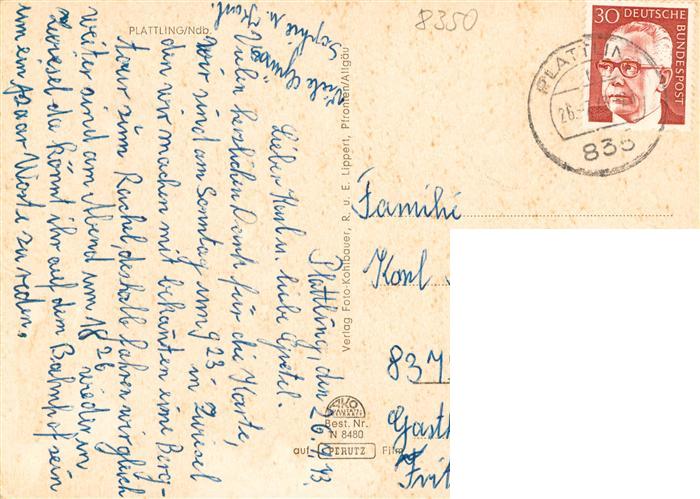 PLATTLING/Ndb.
8350
30 DEUTSCHE BUNDESPOST
PLATTLIN
26.
835
Plattling, den 26.
Lieber Karl u. liebe Gretel.
Vielen herzlichen Dank für die Karte,
wir sind am Sonntag um 9 23 in Zwiesel
den wir machen mit bekanten eine Berg-
tour zum Rachel, deshalb fahren wir gleich
weiter sind am Abend um 18 26 wieder in
Zwiesel da könnt ihr auf dem Bahnhof sein
um ein paar Worte zu reden.
Viele Grüsse
Sophie u. Karl
Verlag Foto-Kohlbauer, R. u. E. Lippert, Pfronten/Allgäu
AKO
Best. Nr.
N 8480
auf PERUTZ Film
Familie
Karl
837
Gasth
Frit